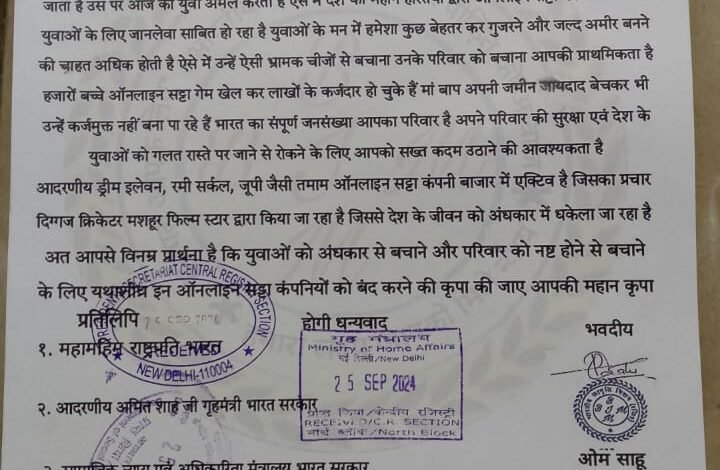 जाता है उस पर आज का युवा अमल करता है ऐसे में देश की महान हस्तियों द्वारा
युवाओं के लिए जानलेवा साबित हो रहा है युवाओं के मन में हमेशा कुछ बेहतर कर गुजरने और जल्द अमीर बनने
की चाहत अधिक होती है ऐसे में उन्हें ऐसी भ्रामक चीजों से बचाना उनके परिवार को बचाना आपकी प्राथमिकता है
हजारों बच्चे ऑनलाइन सट्टा गेम खेल कर लाखों के कर्जदार हो चुके हैं मां बाप अपनी जमीन जायदाद बेचकर भी
उन्हें कर्जमुक्त नहीं बना पा रहे हैं भारत का संपूर्ण जनसंख्या आपका परिवार है अपने परिवार की सुरक्षा एवं देश के
युवाओं को गलत रास्ते पर जाने से रोकने के लिए आपको सख्त कदम उठाने की आवश्यकता है
आदरणीय ड्रीम इलेवन, रमी सर्कल, जूपी जैसी तमाम ऑनलाइन सट्टा कंपनी बाजार में एक्टिव है जिसका प्रचार
दिग्गज क्रिकेटर मशहूर फिल्म स्टार द्वारा किया जा रहा है जिससे देश के जीवन को अंधकार में धकेला जा रहा है
अत आपसे विनम्र प्रार्थना है कि युवाओं को अंधकार से बचाने और परिवार को नष्ट होने से बचाने
के लिए यथाशीघ्र इन ऑनलाइन सट्टा कंपनियों को बंद करने की कृपा की जाए आपकी महान कृपा
होगी धन्यवाद
प्रतिलिपि
भवदीय
SECRETARIAT CENTRAL REGISTRY SECTION
25 SEP 2024
NEW DELHI-110004
१. महामहिम राष्ट्रपति भारत
गृह मंत्रालय
Ministry of Home Affairs
नई दिल्ली/New Delhi
25 SEP 2024
प्राप्त किया/केन्द्रीय रजिस्ट्री
RECEIVED/C.R. SECTION
नार्थ ब्लाक/North Block
२. आदरणीय अमित शाह जी गृहमंत्री भारत सरकार
ओम साहू
३. सामाजिक न्याय एवं अधिकारिता मंत्रालय भारत सरकार